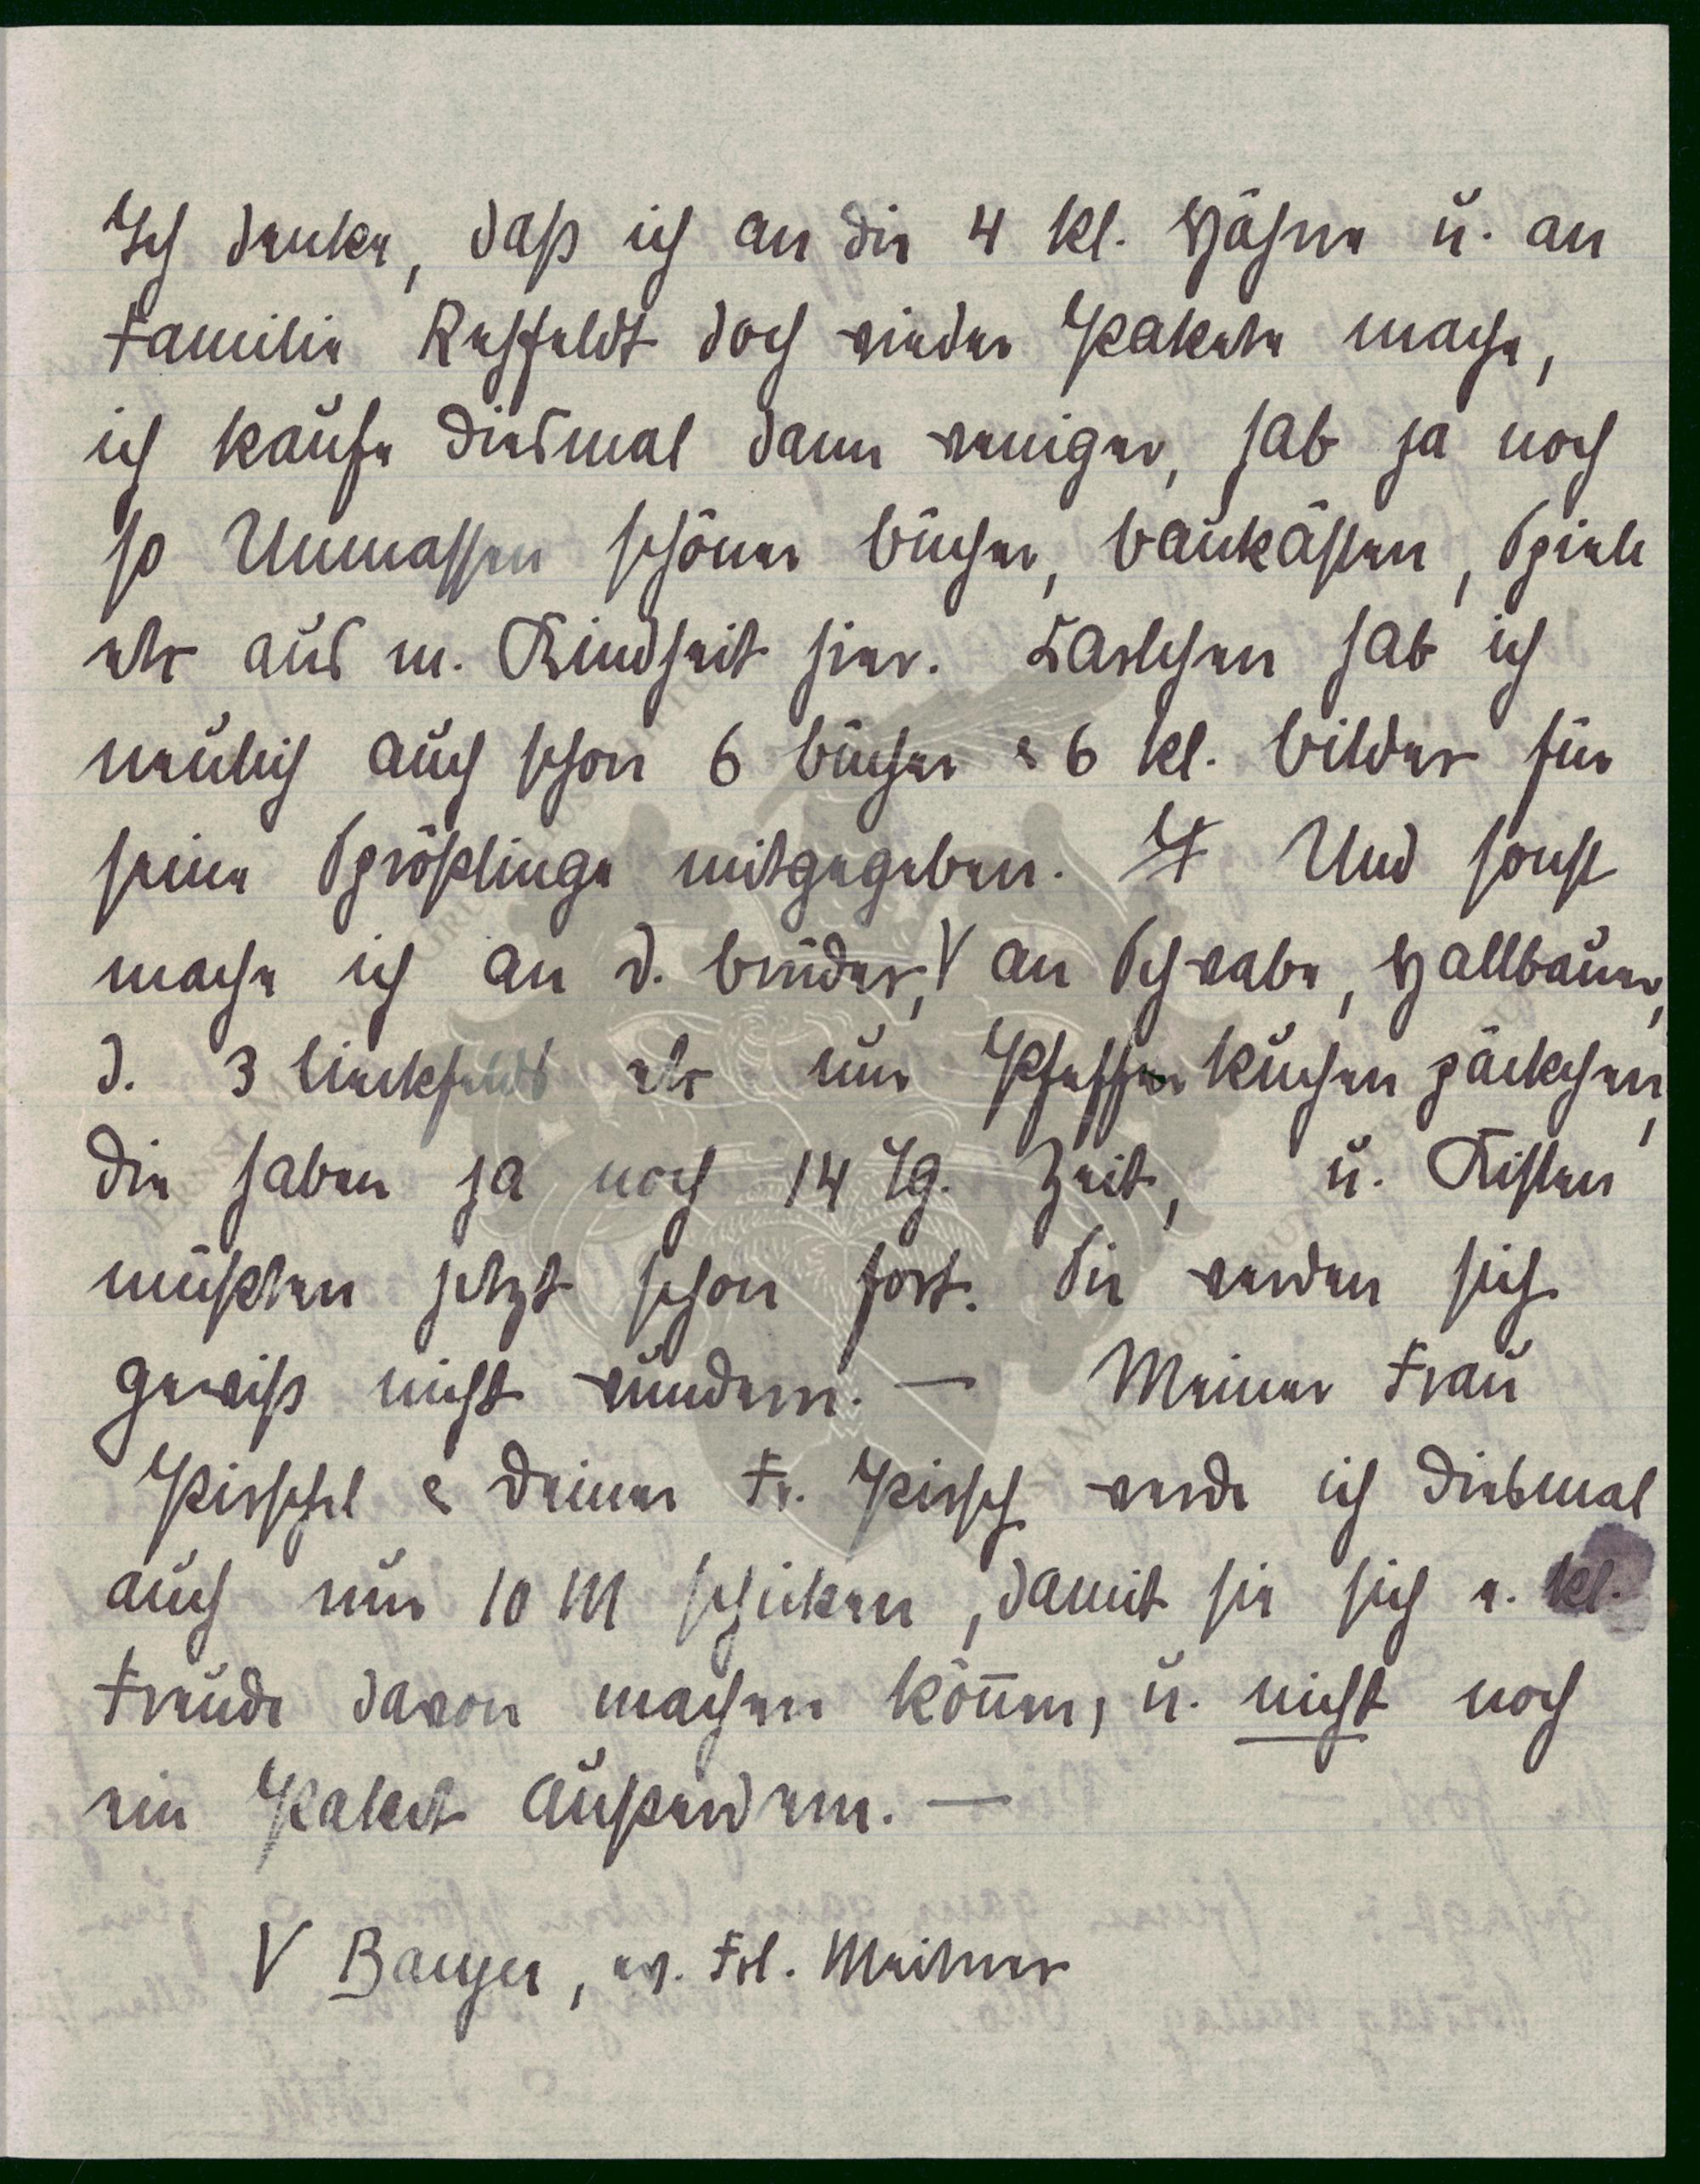 Ich denke, daß ich an die 4 kl. Hähne u. an
Familie Rehfeldt doch wieder Pakete mache,
ich kaufe diesmal dann weniger, hab ja noch
so Unmassen schöner Bücher, Baukästen, Spiele
etc aus m. Kindheit hier. Karlchen hab ich
neulich auch schon 6 Bücher & 6 kl. Bilder für
seine Sprößlinge mitgegeben. Und sonst
mache ich an d. Brüder, V an Schwabe, Hallbauer,
d. 3 etc nur Pfefferkuchen päckchen,
die haben ja noch 14 Tg. Zeit, u. Kisten
müßten jetzt schon fort. Sie werden sich
gewiß nicht wundern. — Meiner Frau
& Deiner Fr. werde ich diesmal
auch nur 10 M schicken, damit sie sich e. kl.
Freude davon machen können, u. nicht noch
ein Paket außerdem. —
V ev. Frl. Meitner